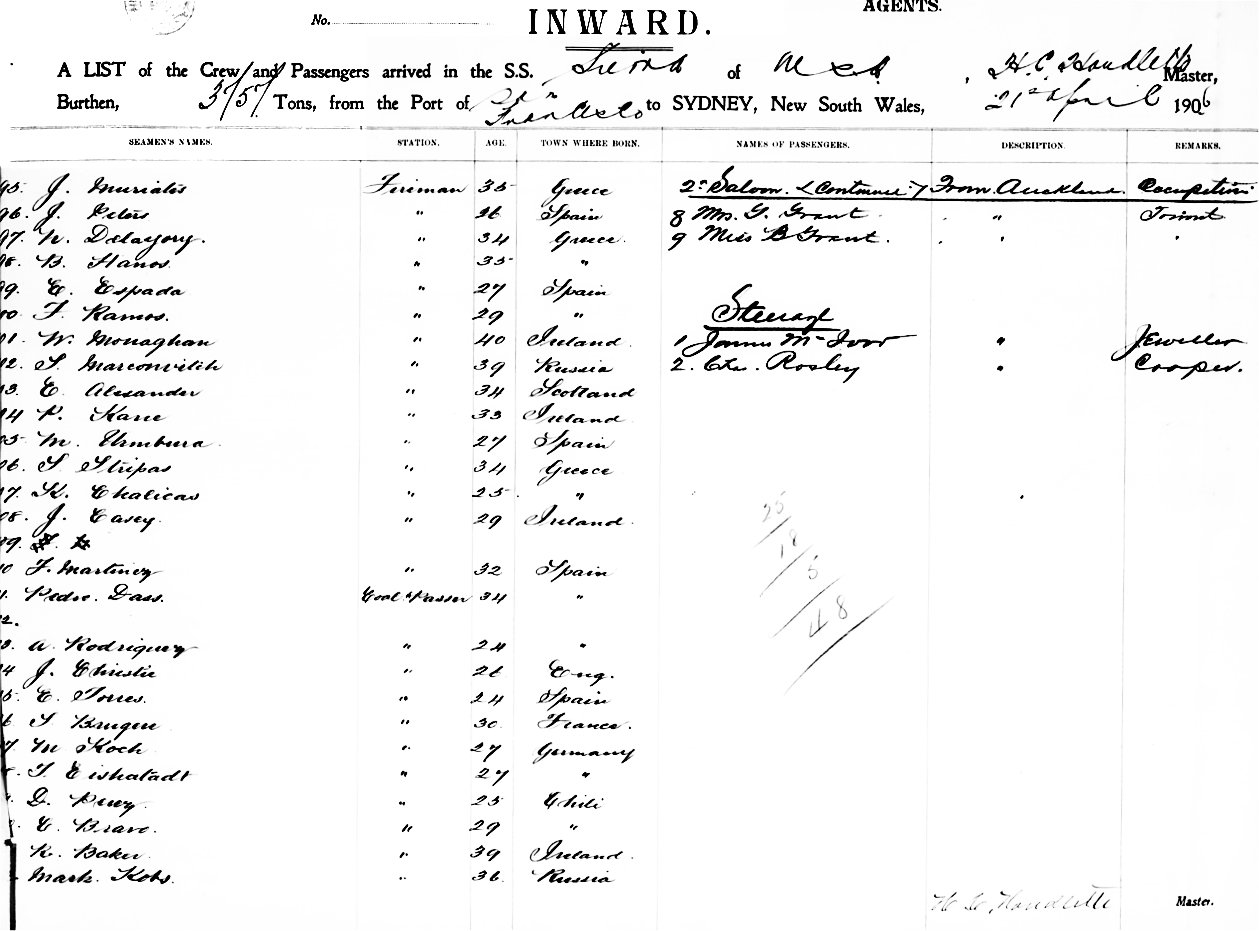 AGENTS.
No.
INWARD.
A LIST of the Crew and Passengers arrived in the S.S. Sierra of , H. C. Houdlette Master,
Burthen, Tons, from the Port of San Francisco to SYDNEY, New South Wales, 21st April 1906
SEAMEN'S NAMES. STATION. AGE. TOWN WHERE BORN. NAMES OF PASSENGERS. DESCRIPTION. REMARKS.
95. J. Muriatis Fireman 35 Greece 2nd Saloon (Continued) From Auckland Occupation
96. J. Peters " 26 Spain 8 Mrs. G. Grant " Tourist
97. N. Delagory. " 34 Greece. 9 Miss B Grant. " "
98. B. Stanos. " 35 "
99. E. Espada " 27 Spain
00. F. Ramos. " 29 " Steerage
01. W. Monaghan " 40 Ireland. 1 James McIvor " Jeweller
02. S. Marconvitch " 39 Russia 2. Chs. Rosley " Cooper.
03. E. Alexander " 34 Scotland
04 P. Kane " 33 Ireland.
05. M. " 27 Spain
06. S. Stripas " 34 Greece
07. K. Chalicas " 25 "
08. J. Casey. " 29 Ireland.
09.
10 F. Martinez " 32 Spain
1. Pedro. Dass. Coal Passer 34 "
2.
3. A. Rodriguez " 24 "
4 J. Christie " 26 Eng.
5. E. Torres. " 24 Spain
6 S Brugen " 30 France.
7. M Koch " 27 Germany
T Eishatadt " 27 "
D. Perez. " 25 Chili
E. Bravo. " 29 "
R. Baker. " 39 Ireland.
Mark. Kobs. " 36 Russia
25
18
5
48
H. C. Houdlette Master.